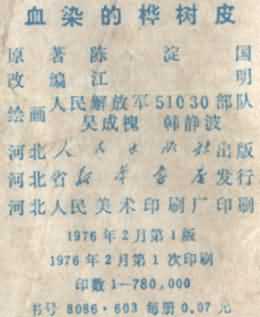 血染的桦树皮
原著 陈淀国
改编 江明
绘画 人民解放军51030部队
吴成槐 韩静波
河北人民出版社出版
河北省新华书店发行
河北人民美术印刷厂印刷
1976年2月第1版
1976年2月第1次印刷
印数1—780,000
书号 8086·603 每册0.07元